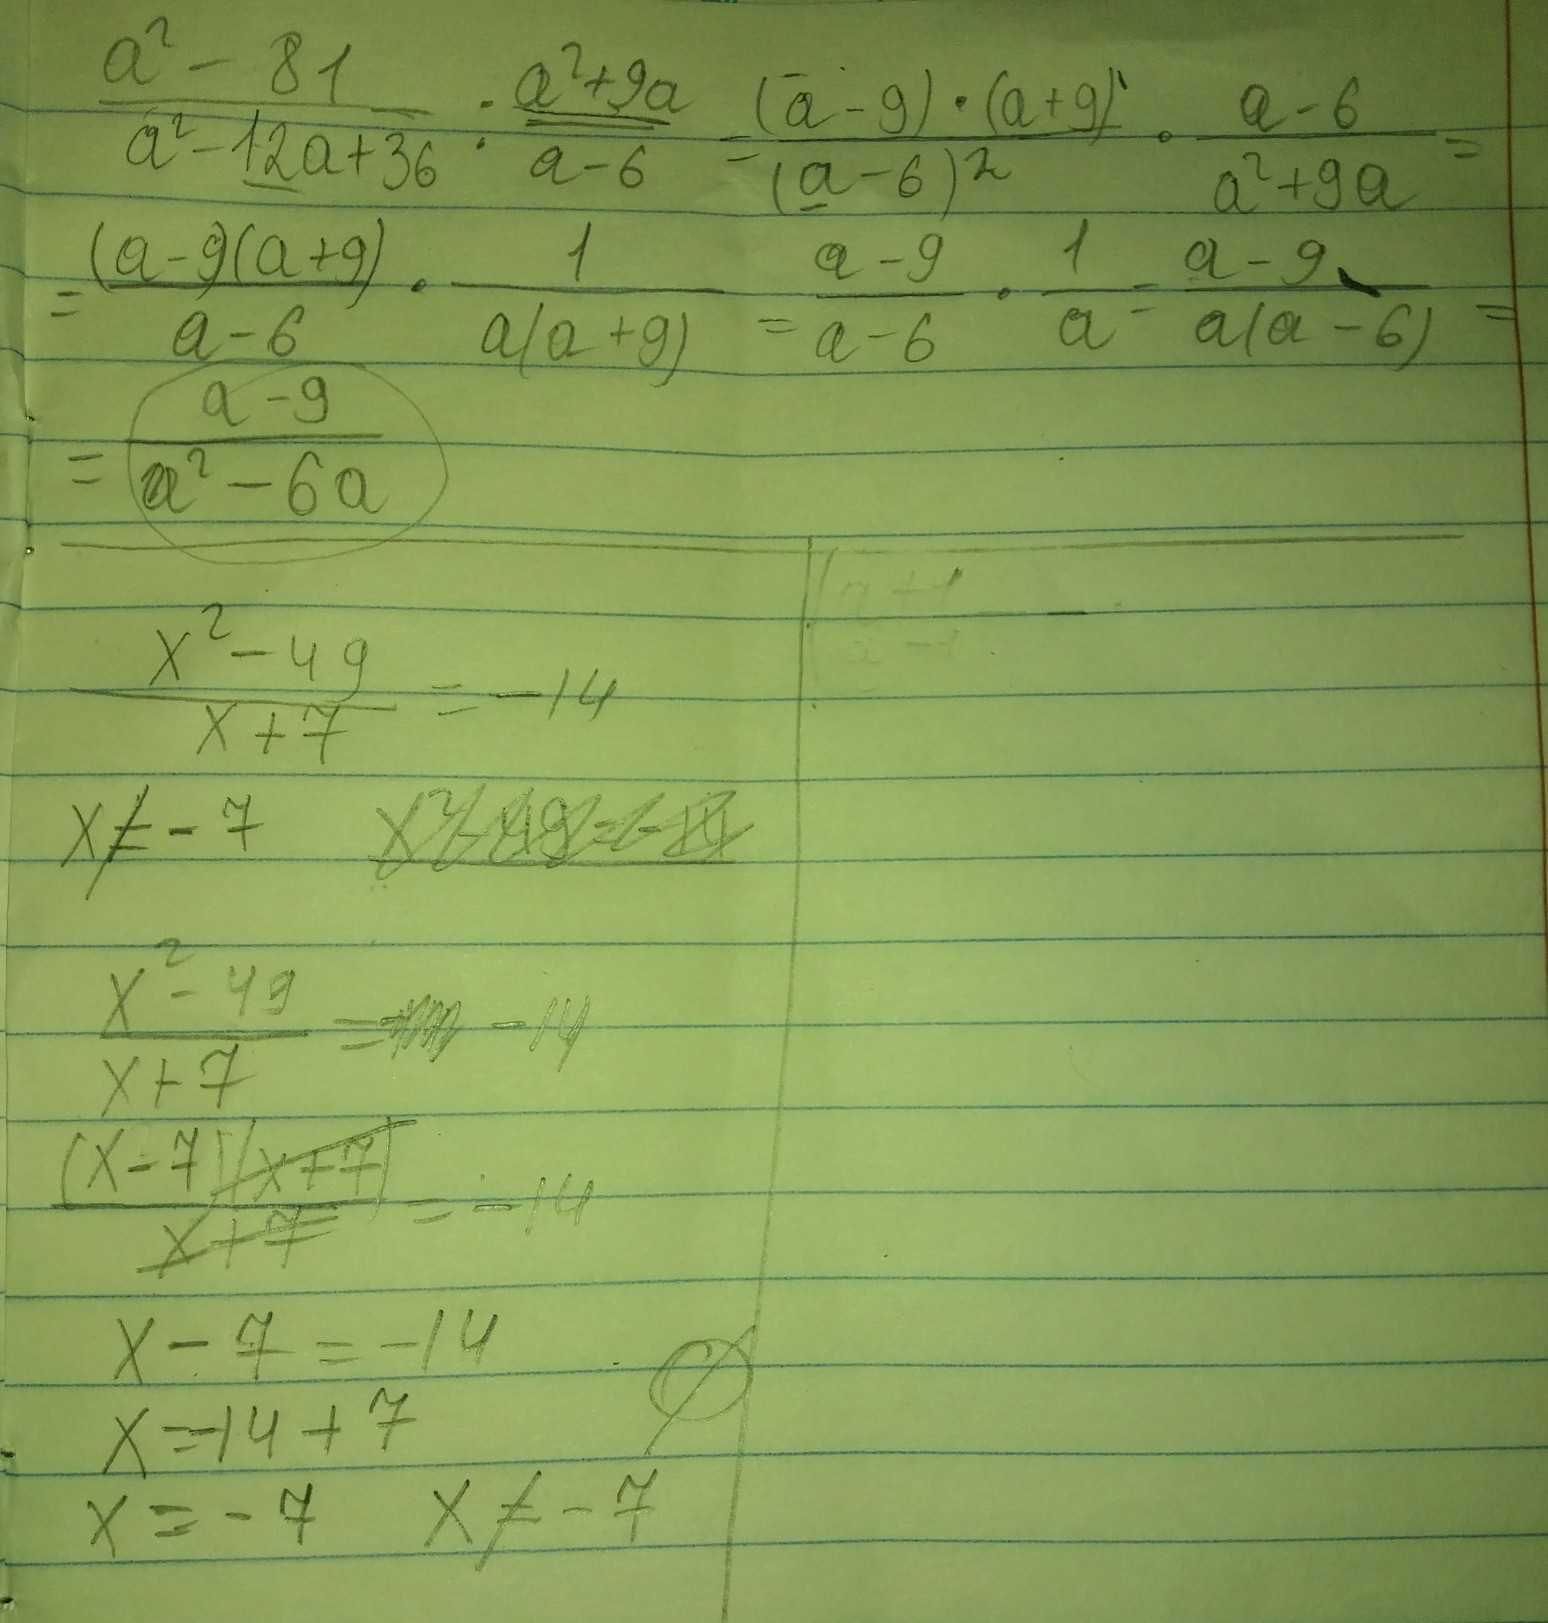 (a² - 81)/(a² - 12a + 36) : (a² + 9a)/(a - 6) = ((a - 9) · (a + 9))/(a - 6)² · (a - 6)/(a² + 9a) =
= ((a - 9)(a + 9))/(a - 6) · 1/(a(a + 9)) = (a - 9)/(a - 6) · 1/a = (a - 9)/(a(a - 6)) =
= (a - 9)/(a² - 6a)
(x² - 49)/(x + 7) = -14
x ≠ -7
(x² - 49)/(x + 7) = -14
((x - 7)(x + 7))/(x + 7) = -14
x - 7 = -14
x = -14 + 7
∅
x = -7 x ≠ -7